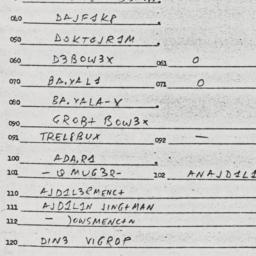 040 DAJF1KP
050 DOKTOJR1M
060 D3BOW3X 061 O
070 BA.YAL1 071 O
080 BA.YALA-V
090 GROB+ BOW3X
091 TRELEBUX 092 —
100 ADA,R1
101 - Q MUG3R- 102 ANAJD1L1
110 AJD1L3RMENC+
111 AJD1L1N JINGTMAN
112 - )OWSMENC+N
120 DIN3 VIGROP